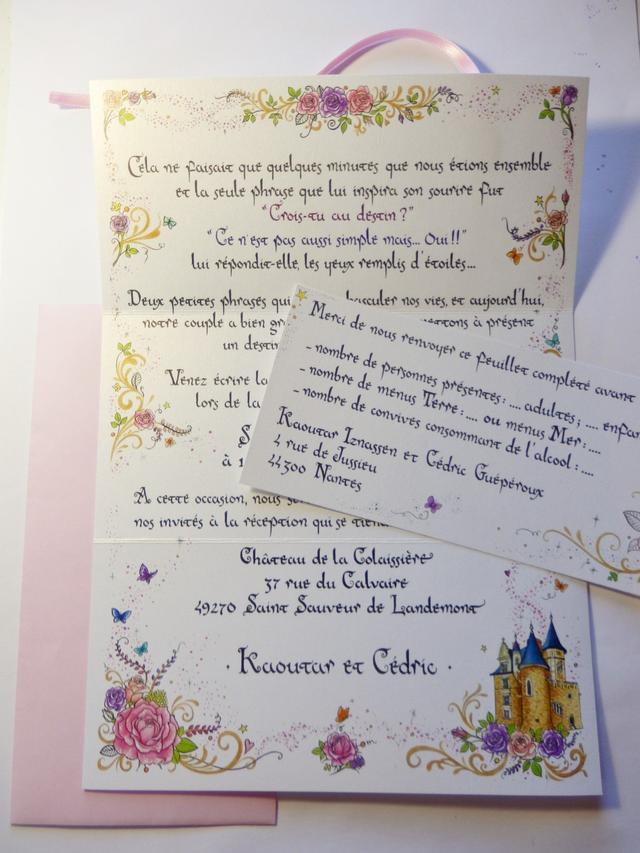 Cela ne faisait que quelques minutes que nous étions ensemble
et la seule phrase que lui inspira son sourire fut
"Crois-tu au destin ?"
"Ce n'est pas aussi simple mais... Oui !!"
lui répondit-elle, les yeux remplis d'étoiles...
Deux petites phrases qui basculer nos vies, et aujourd'hui,
notre couple a bien à présent
un
Venez écrire la
lors de la
S
à 1
A cette occasion, nous
nos invités à la réception qui se
Château de la Colaissière
37 rue du Calvaire
49270 Saint Sauveur de Landemont
· Kaoutar et Cédric ·
Merci de nous renvoyer ce feuillet complété avant
- nombre de personnes présentes : .... adultes ; .... enfan
- nombre de menus Terre : .... ou menus Mer : ....
- nombre de convives consommant de l'alcool : ....
Kaoutar Iznassen et Cédric Guépéroux
4 rue de Jussieu
44300 Nantes